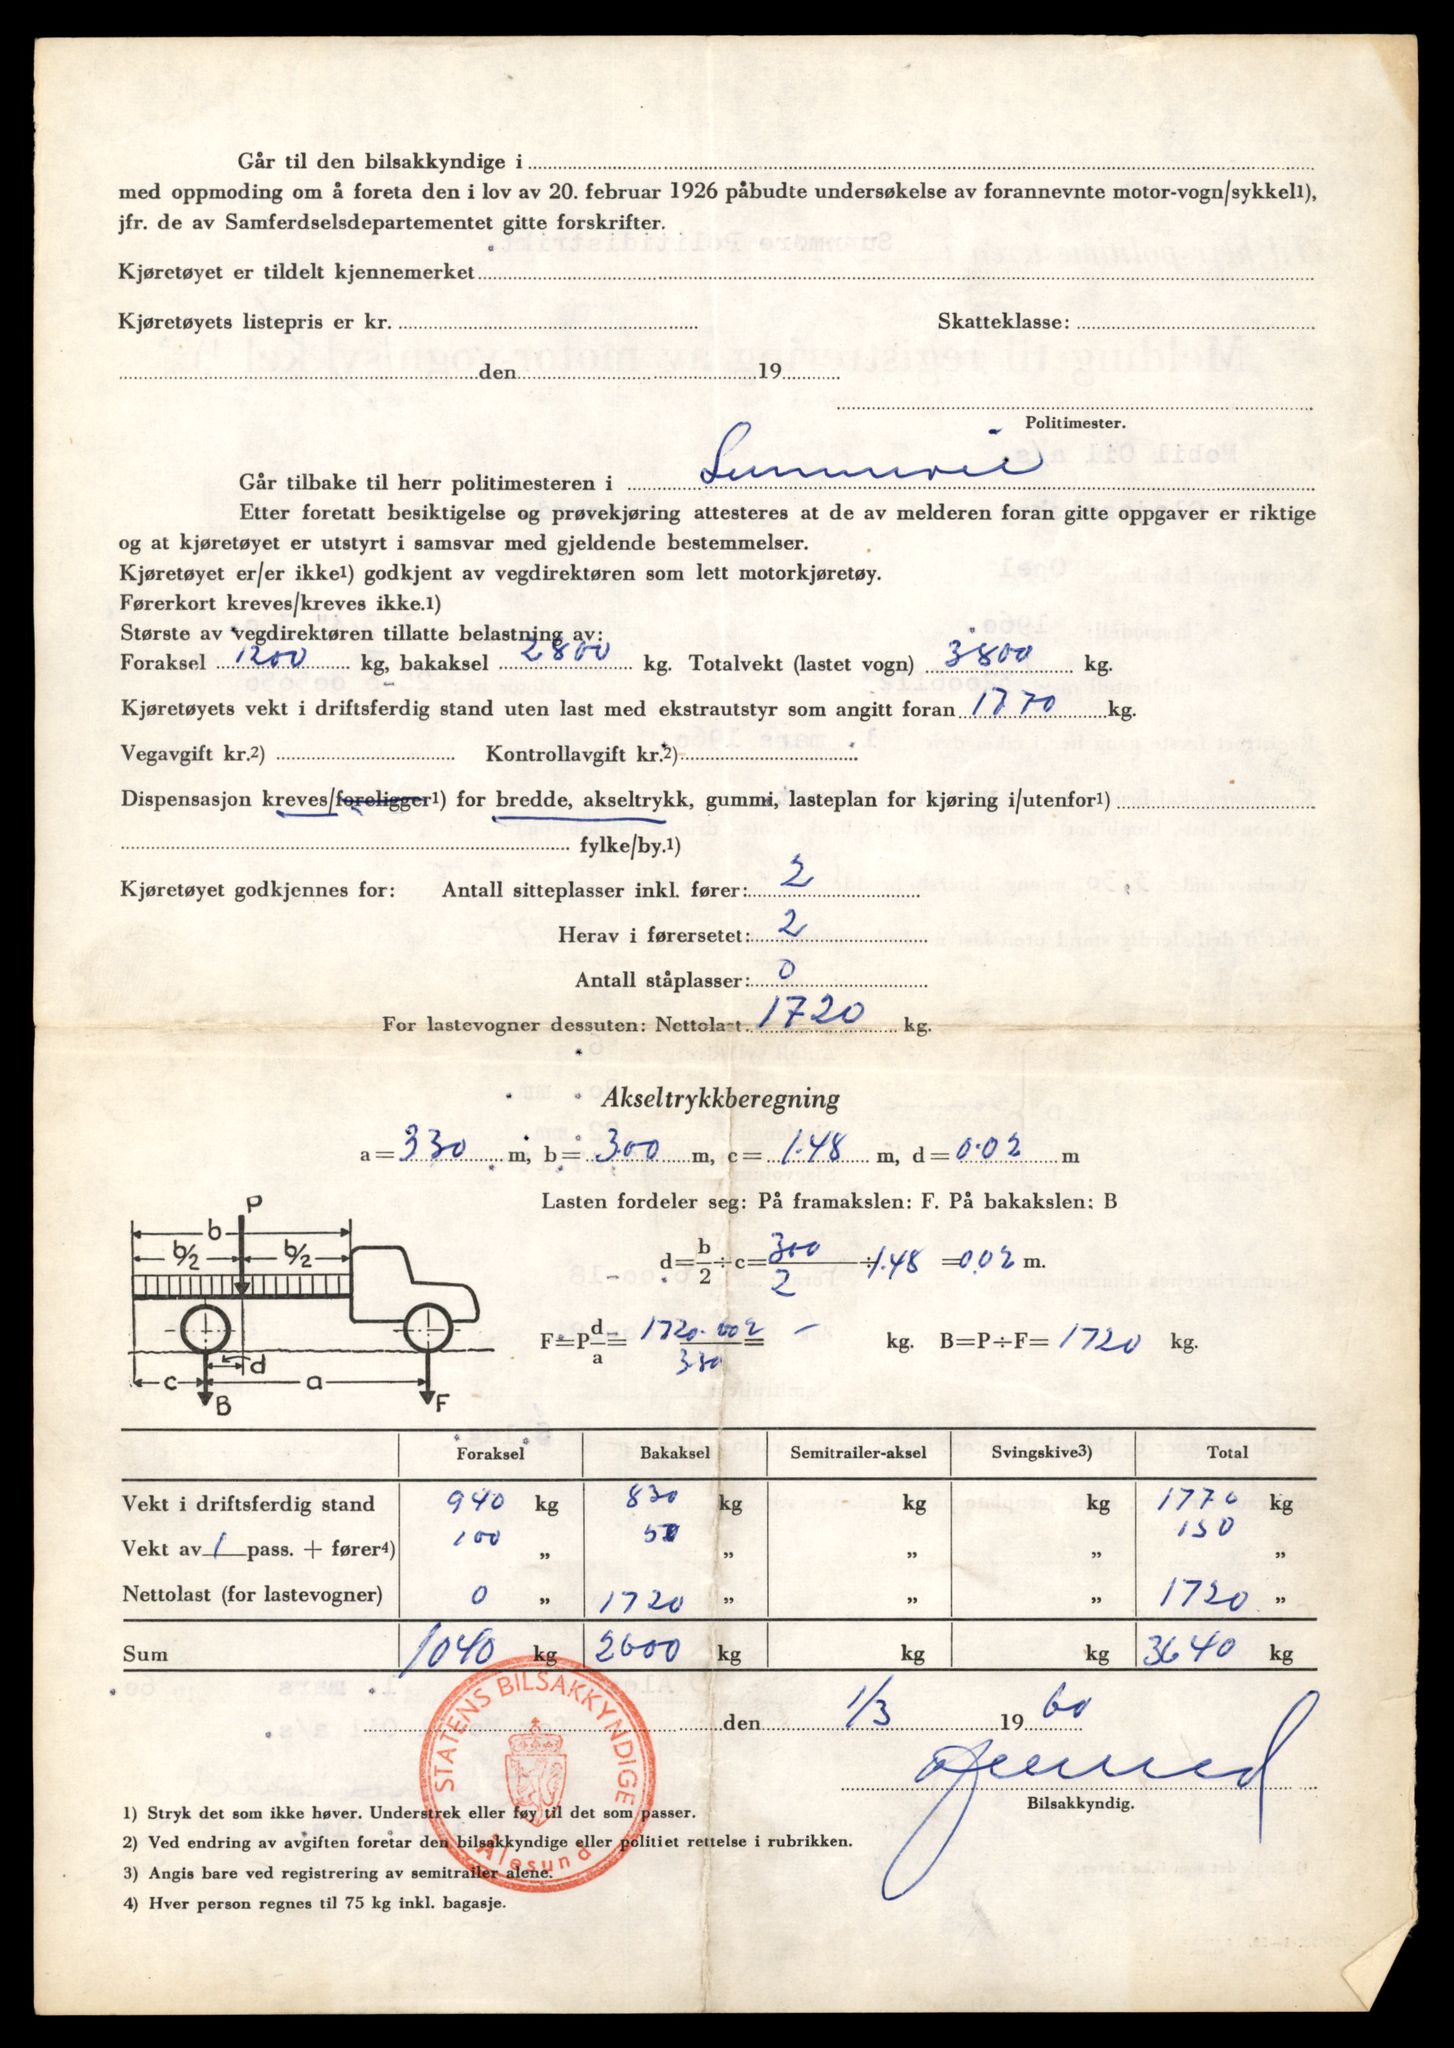 Går til den bilsakkyndige i
med oppmoding om å foreta den i lov av 20. februar 1926 påbudte undersøkelse av forannevnte motor-vogn/sykkel1),
jfr. de av Samferdselsdepartementet gitte forskrifter.
Kjøretøyet er tildelt kjennemerket
Kjøretøyets listepris er kr. Skatteklasse:
den 19
Politimester.
Går tilbake til herr politimesteren i Sunnmøre
Etter foretatt besiktigelse og prøvekjøring attesteres at de av melderen foran gitte oppgaver er riktige
og at kjøretøyet er utstyrt i samsvar med gjeldende bestemmelser.
Kjøretøyet er/er ikke1) godkjent av vegdirektøren som lett motorkjøretøy.
Førerkort kreves/kreves ikke.1)
Største av vegdirektøren tillatte belastning av:
Foraksel 1200 kg, bakaksel 2800 kg. Totalvekt (lastet vogn) 3800 kg.
Kjøretøyets vekt i driftsferdig stand uten last med ekstrautstyr som angitt foran 1770 kg.
Vegavgift kr.2) Kontrollavgift kr.2)
Dispensasjon kreves/foreligger1) for bredde, akseltrykk, gummi, lasteplan for kjøring i/utenfor1)
fylke/by.1)
Kjøretøyet godkjennes for: Antall sitteplasser inkl. fører: 2
Herav i førersetet: 2
Antall ståplasser: 0
For lastevogner dessuten: Nettolast 1720 kg.
Akseltrykkberegning
a = 330 m, b = 3.00 m, c = 1.48 m, d = 0.02 m
Lasten fordeler seg: På framakslen: F. På bakakslen: B
P
b
b/2 b/2
d=b/2÷c= 300/2 ÷ 1.48 = 0.02 m.
F=P d/a= 1720.002/330 = – kg. B=P÷F= 1720 kg.
d
c a
B F
Foraksel Bakaksel Semitrailer-aksel Svingskive3) Total
Vekt i driftsferdig stand 940 kg 830 kg kg kg 1770 kg
Vekt av 1 pass. + fører4) 100 „ 50 „ „ „ 150 „
Nettolast (for lastevogner) 0 „ 1720 „ „ „ 1720 „
Sum 1040 kg 2600 kg kg kg 3640 kg
den 1/3 1960
STATENS BILSAKKYNDIGE
Ålesund
Bilsakkyndig.
1) Stryk det som ikke høver. Understrek eller føy til det som passer.
2) Ved endring av avgiften foretar den bilsakkyndige eller politiet rettelse i rubrikken.
3) Angis bare ved registrering av semitrailer alene.
4) Hver person regnes til 75 kg inkl. bagasje.